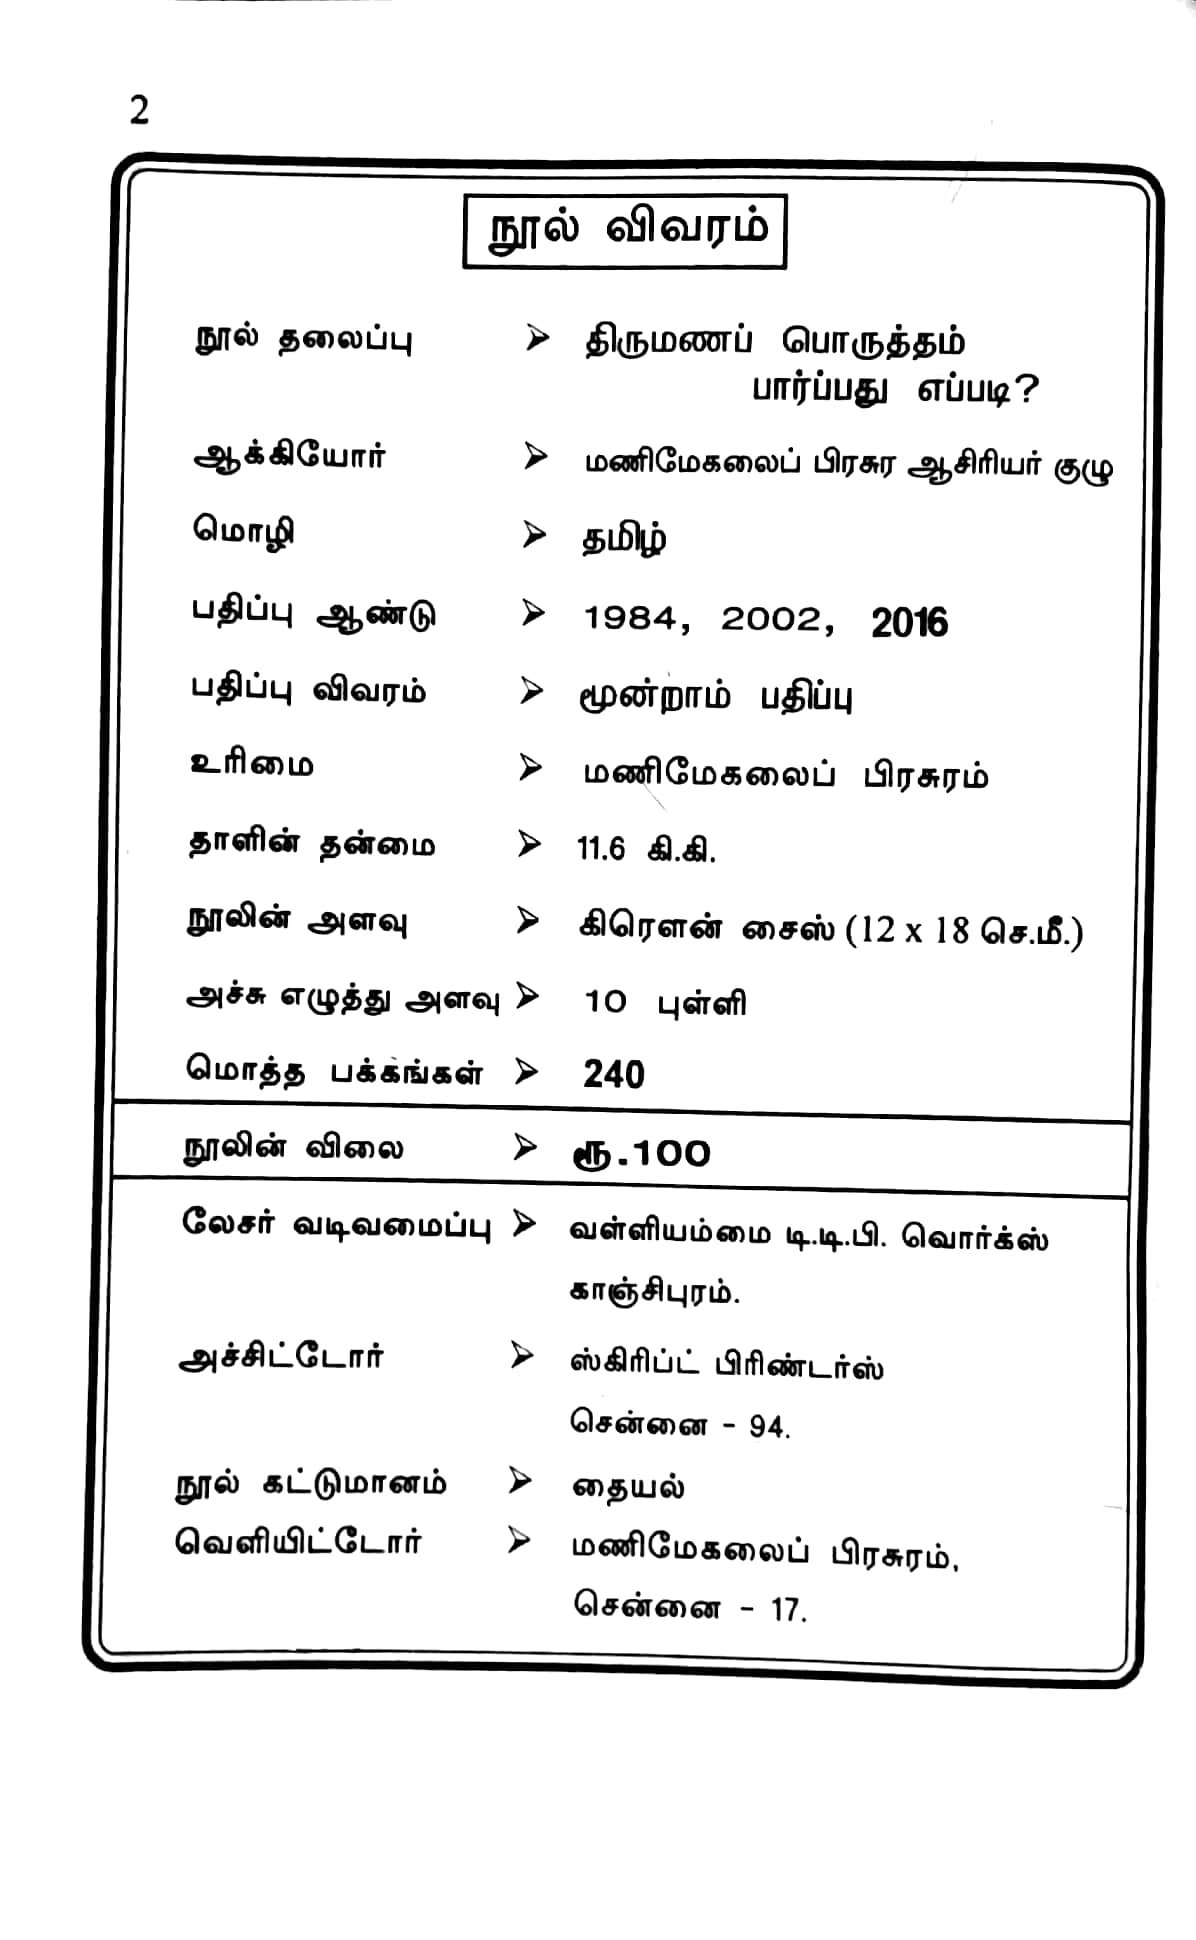 2
நூல் விவரம்
நூல் தலைப்பு ➢ திருமணப் பொருத்தம்
பார்ப்பது எப்படி?
ஆக்கியோர் ➢ மணிமேகலைப் பிரசுர ஆசிரியர் குழு
மொழி ➢ தமிழ்
பதிப்பு ஆண்டு ➢ 1984, 2002, 2016
பதிப்பு விவரம் ➢ மூன்றாம் பதிப்பு
உரிமை ➢ மணிமேகலைப் பிரசுரம்
தாளின் தன்மை ➢ 11.6 கி.கி.
நூலின் அளவு ➢ கிரௌன் சைஸ் (12 x 18 செ.மீ.)
அச்சு எழுத்து அளவு ➢ 10 புள்ளி
மொத்த பக்கங்கள் ➢ 240
நூலின் விலை ➢ ரூ.100
லேசர் வடிவமைப்பு ➢ வள்ளியம்மை டி.டி.பி. வொர்க்ஸ்
காஞ்சிபுரம்.
அச்சிட்டோர் ➢ ஸ்கிரிப்ட் பிரிண்டர்ஸ்
சென்னை - 94.
நூல் கட்டுமானம் ➢ தையல்
வெளியிட்டோர் ➢ மணிமேகலைப் பிரசுரம்,
சென்னை - 17.